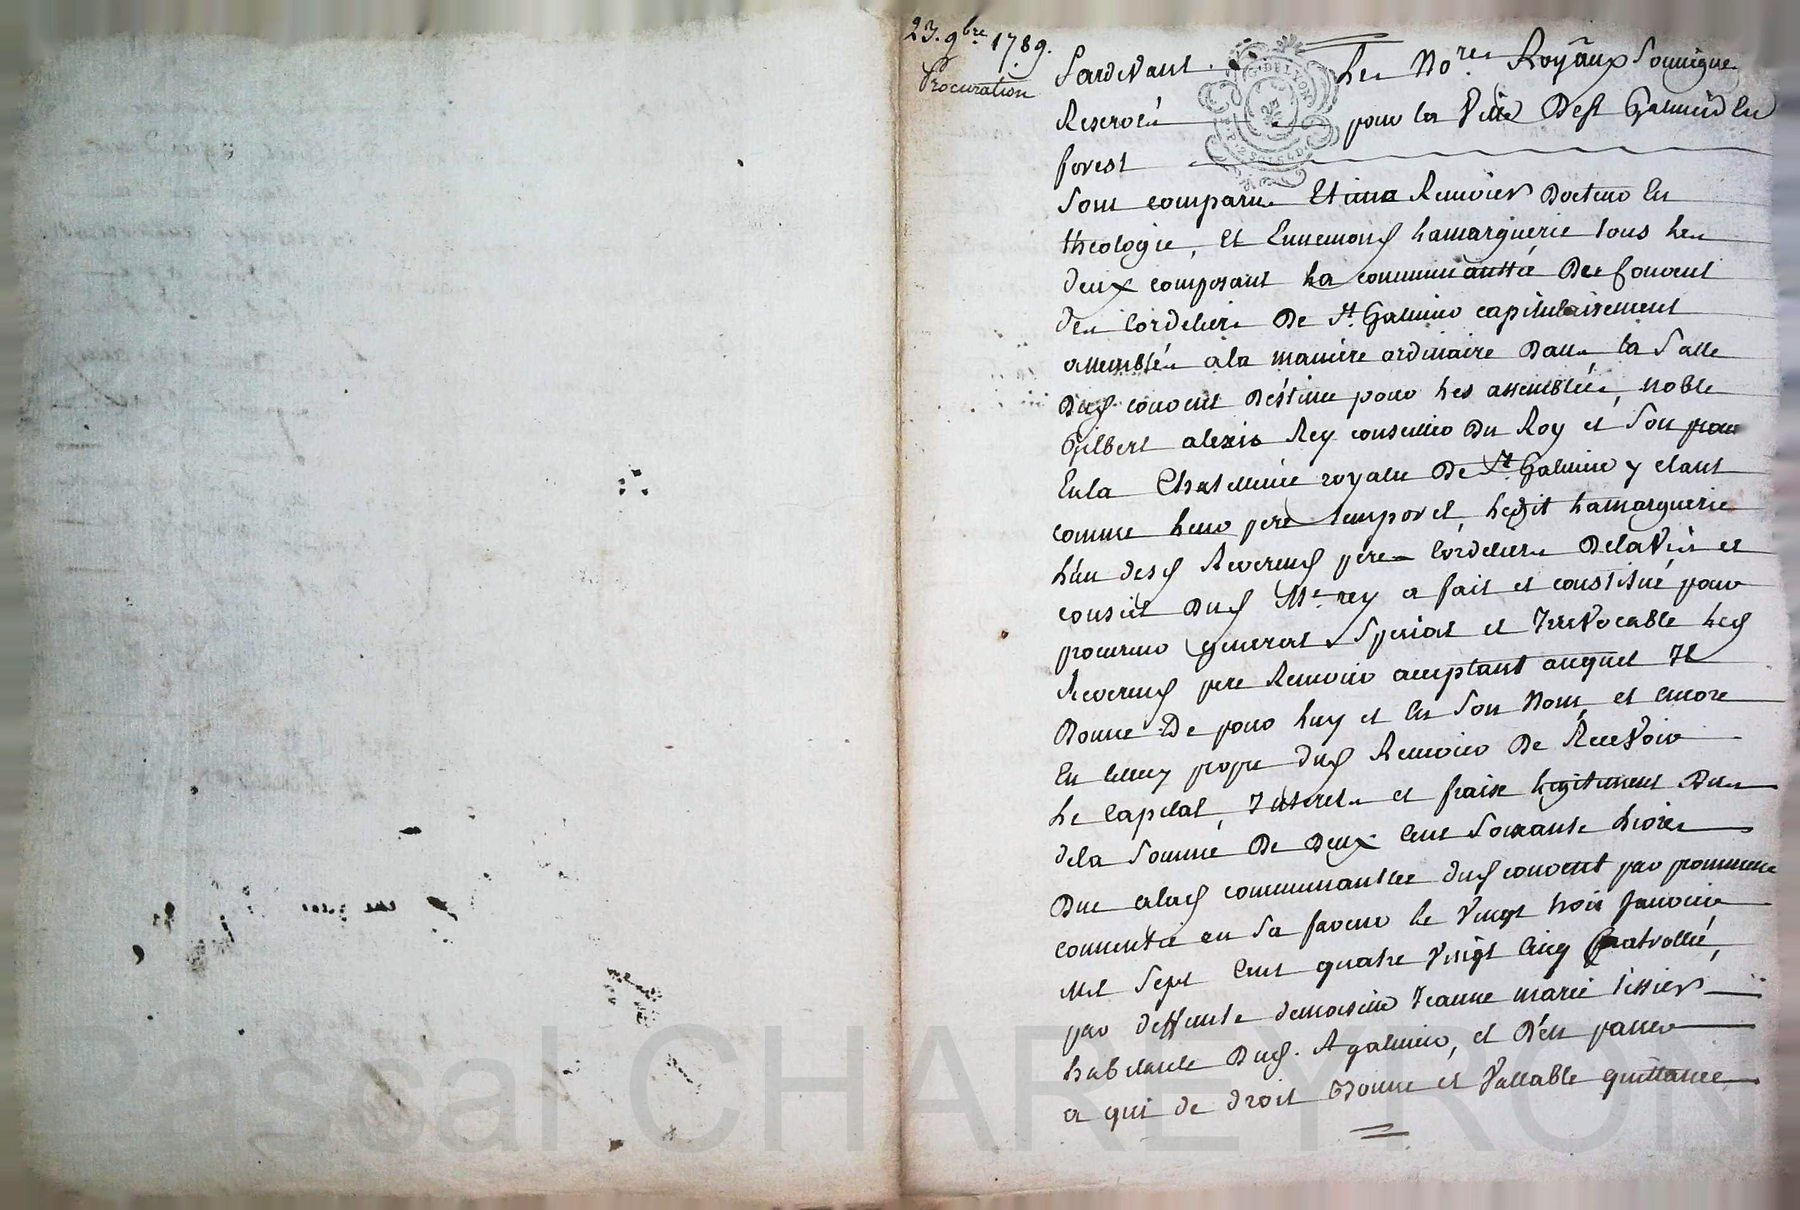 23. 9bre 1789.
Procuration
Pardevant Les Nores Royaux Soussignes
Reservés pour la Ville De st Galmier En
forest
Sont comparus Etienne Renvier Docteur En
theologie, Et Ennemond Lamarguerie tous Les
deux composant La communauttée Des Couvent
des Cordeliers De St Galmier capitulairement
assemblés a la maniere ordinaire Dans la Salle
Dud couvent Déstinée pour Les assemblées, noble
Gilbert alexis Rey conseiller Du Roy et Son
En la Chatellenie royalle De St Galmier y etant
comme Leur pere temporel, Ledit Lamarguerie
L'un desd Reverends peres Cordeliers De l'avis et
conseil Dud Me rey a fait et constitué pour
procureur general Special et Irrevocable Led
Reverend pere Renvier acceptant auquel Il
Donne De pour Luy et En Son Nom, et encore
En celuy propre dud Renvier De Recevoir
Le Capital, Interets et fraix legitimement Dus
de la Somme De Deux Cent Soixante Livres
Due a lad communauttée dud couvent par promesse
consentie en Sa faveur le Vingt trois Janvier
mil Sept Cent quatre Vingt Cinq Controllée,
par deffunte demoiselle Jeanne marie tissier
habitante Dud. St galmier, et D'en passer
a qui de droit Bonne et Vallable quittance
Pascal CHAREYRON